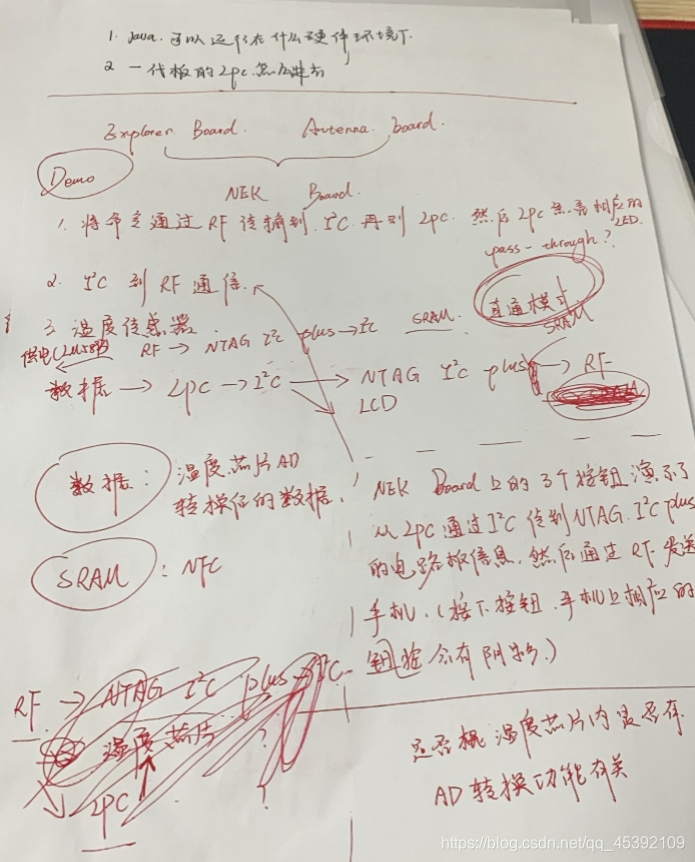 1. java. 可以运行在什么硬件环境下.
2 一代板的2pc.怎么
Explorer Board. Antenna board.
Demo
NEK Board.
1. 将命令通过 RF 传输到 I²C 再到 2pc. 然后 2pc 点亮相应的
LED.
pass-through?
2. I²C 到 RF 通信.
直通模式
SRAM
3. 温度传感器.
供电(LM75)
RF → NTAG I²C plus → I²C SRAM.
数据 → 2pc → I²C → NTAG I²C plus → RF
LCD
数据: 温度芯片AD
转换后的数据.
SRAM: NFC
NEK Board 上的3个按钮演示了
从2pc通过I²C传到NTAG I²C plus
的电路板信息, 然后通过 RF 发送
手机. (按下按钮. 手机上相应的
钮按会有阴影.)
RF → NTAG I²C plus → I²C
温度芯片
2pc
是否概 温度芯片内是否有
AD 转换功能有关
https://blog.csdn.net/qq_45392109